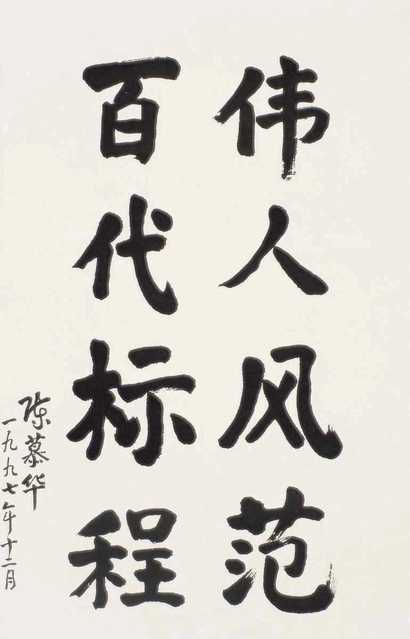 伟人风范
百代标程
陈慕华
一九九七年十二月